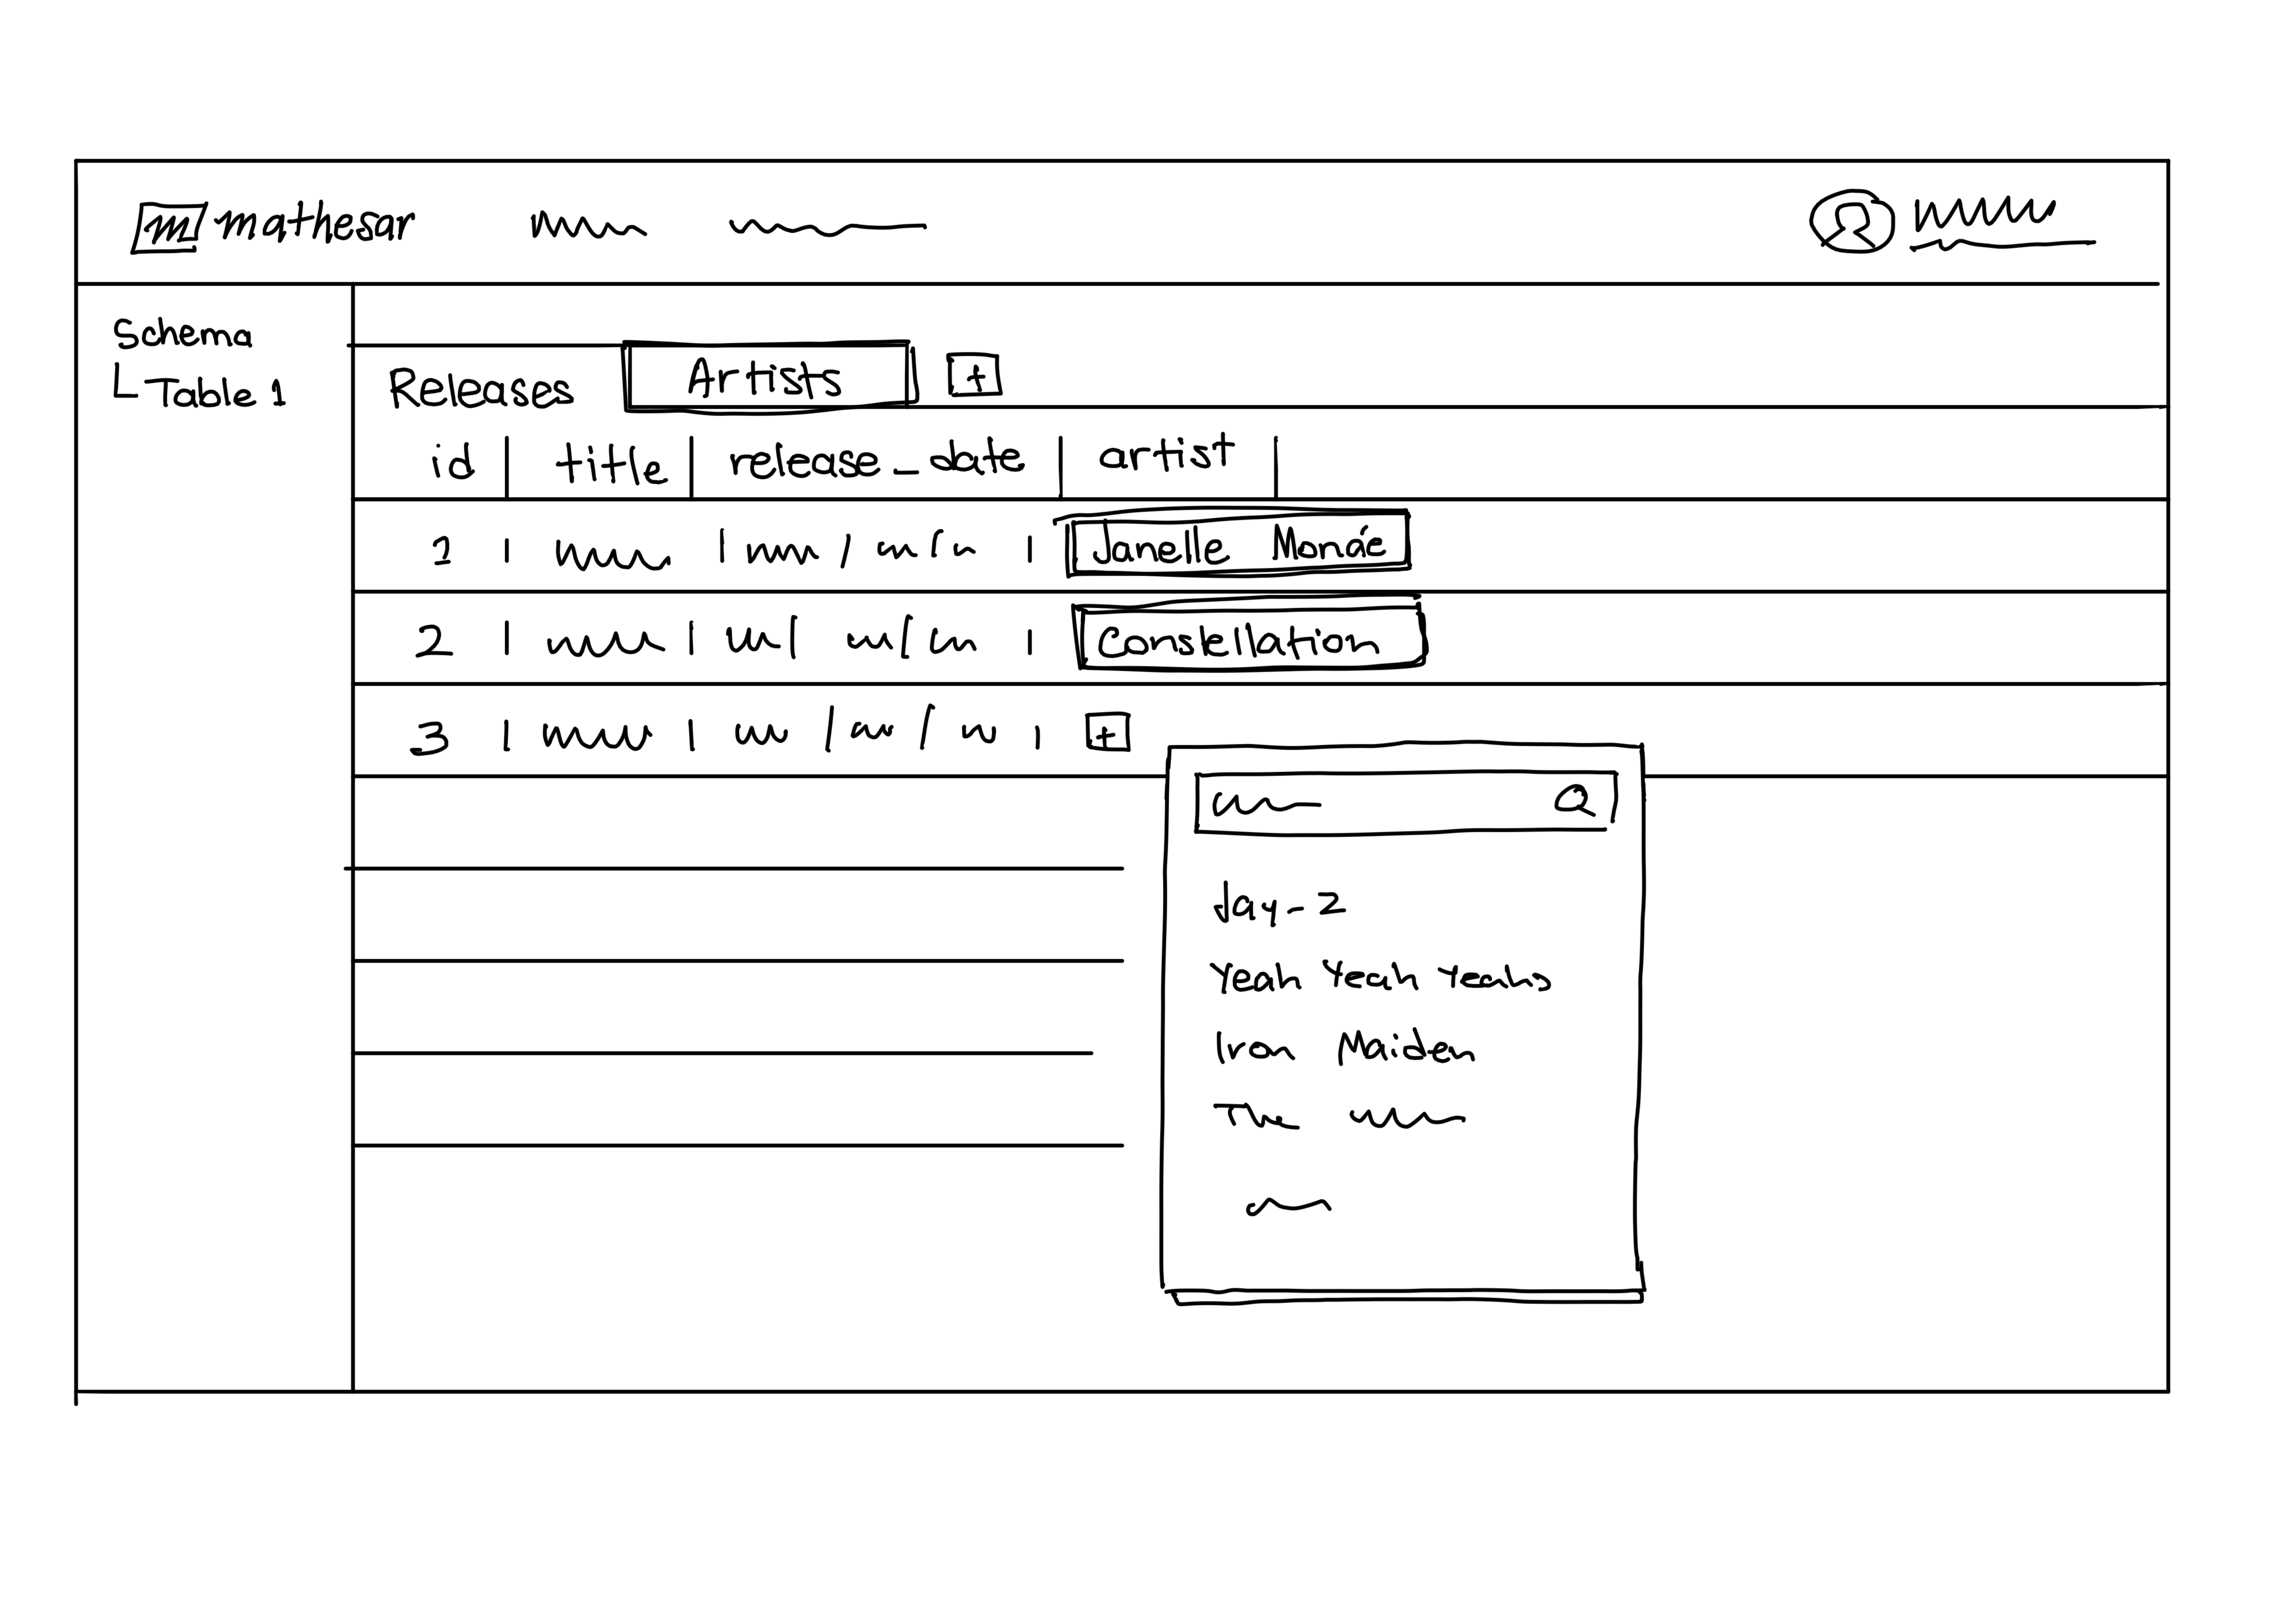 m mathesar
Schema
Table 1
Releases Artists +
id title release_date artist
1 Janelle Monáe
2 Constellation
3 +
Jay-Z
Yeah Yeah Yeahs
Iron Maiden
The